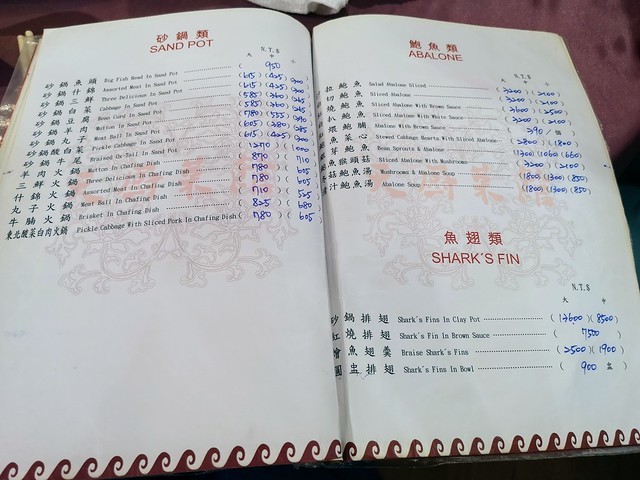 砂鍋類
SAND POT
N.T.$
大 中 小
砂鍋魚頭 Big Fish Head In Sand Pot ( 950 )
砂鍋什錦 Assorted Meat In Sand Pot (615)(425)(300)
砂鍋三鮮 Three Delicious In Sand Pot (585)(360)(265)
砂鍋白菜 Cabbage In Sand Pot (585)(360)(265)
砂鍋豆腐 Bean Curd In Sand Pot
砂鍋羊肉 Mutton In Sand Pot
砂鍋丸子 Meat Ball In Sand Pot
砂鍋酸白菜 Pickle Cabbage In Sand Pot (615)(425)(300)
砂鍋牛尾 Braised Ox-Tail In Sand Pot
羊肉火鍋 Mutton In Chafing Dish
三鮮火鍋 Three Delicious In Chafing Dish
什錦火鍋 Assorted Meat In Chafing Dish
丸子火鍋 Meat Ball In Chafing Dish
牛腩火鍋 Brisket In Chafing Dish
東北酸菜白肉火鍋 Pickle Cabbage With Sliced Pork In Chafing Dish (780)(605)
鮑魚類
ABALONE
N.T.$
大 中 小
鮑魚 Salad Abalone Sliced (3200)(2100)
鮑魚 Sliced Abalone (3200)(2100)
鮑魚 Sliced Abalone With Brown Sauce (3600)(2500)
鮑魚 Sliced Abalone With White Sauce (3200)(2100)
鮑脯 Abalone With Brown Sauce ( 390 個
魚菜心 Stewed Cabbage Hearts With Sliced Abalone (2800)(1800)
芽鮑魚 Bean Sprouts & Abalone (1300)(1060)(660)
魚猴頭菇 Sliced Abalone With Mushrooms (3200)(2100)
菇鮑魚湯 Mushrooms & Abalone Soup (1800)(1300)(850)
汁鮑魚湯 Abalone Soup (1800)(1300)(850)
魚翅類
SHARK'S FIN
N.T.$
大 中
砂鍋排翅 Shark's Fins In Clay Pot (12600)(8500)
紅燒排翅 Shark's Fins In Brown Sauce ( 7500 )
燴魚翅羹 Braise Shark's Fins (2500)(1900)
排翅 Shark's Fins In Bowl ( 900 盅 )